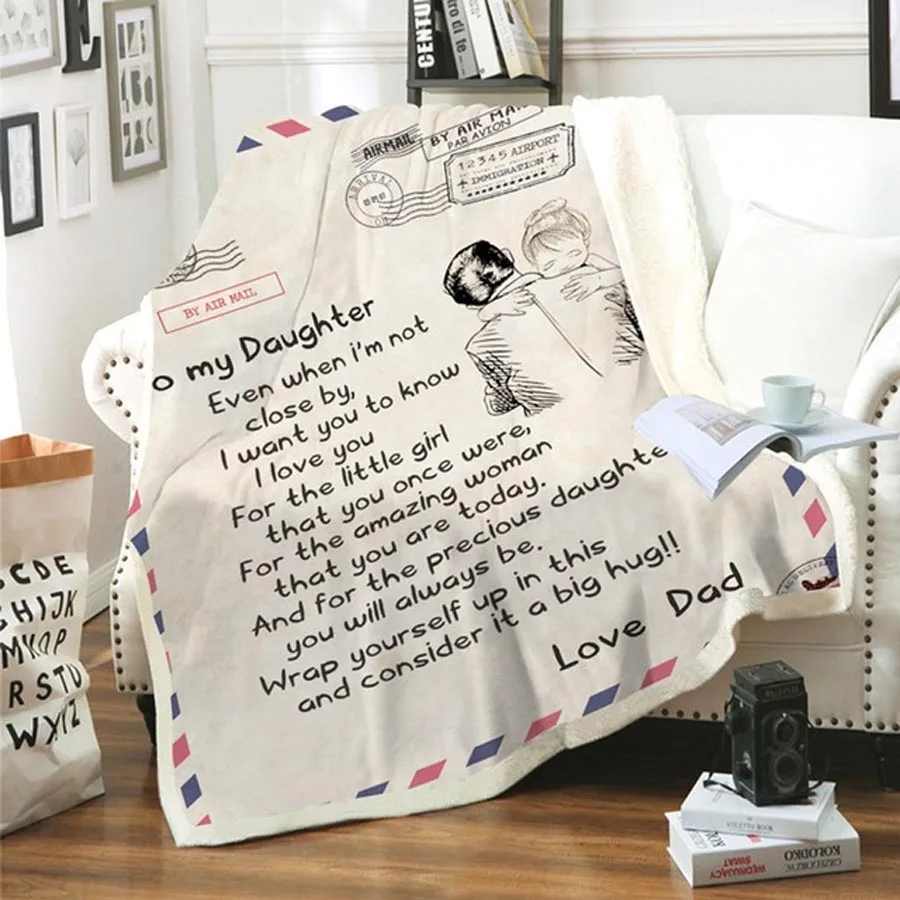 CENTU
ro di fe
AIRMAIL
BY AIR MAIL
PAR AVION
12345 AIRPORT
IMMIGRATION
ARRIVAL
BY AIR MAIL
o my Daughter
Even when i'm not
close by,
I want you to know
I love you
For the little girl
that you once were,
For the amazing woman
that you are today.
And for the precious daughte
you will always be.
Wrap yourself up in this
and consider it a big hug!!
Love Dad
CDE
GHIJK
MNOP
RSTU
WXYZ
GRZEGORZEW
KOŁODKO
WĘDRUJĄCY
ŚWIAT